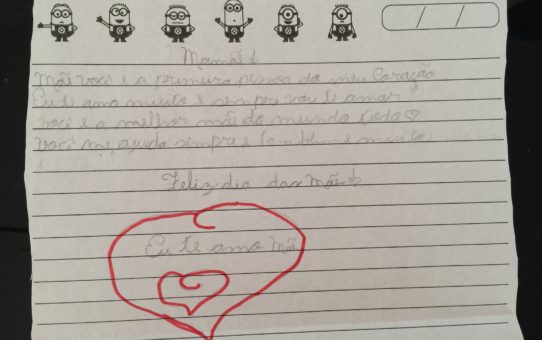 / /
Mamãe
Mãe você é a primeira pessoa do meu Coração
Eu te amo muito e sempre vou te amar
você é a melhor mãe do mundo todo
você me ajuda sempre e também muito
Feliz dia das Mães
Eu te amo Mãe